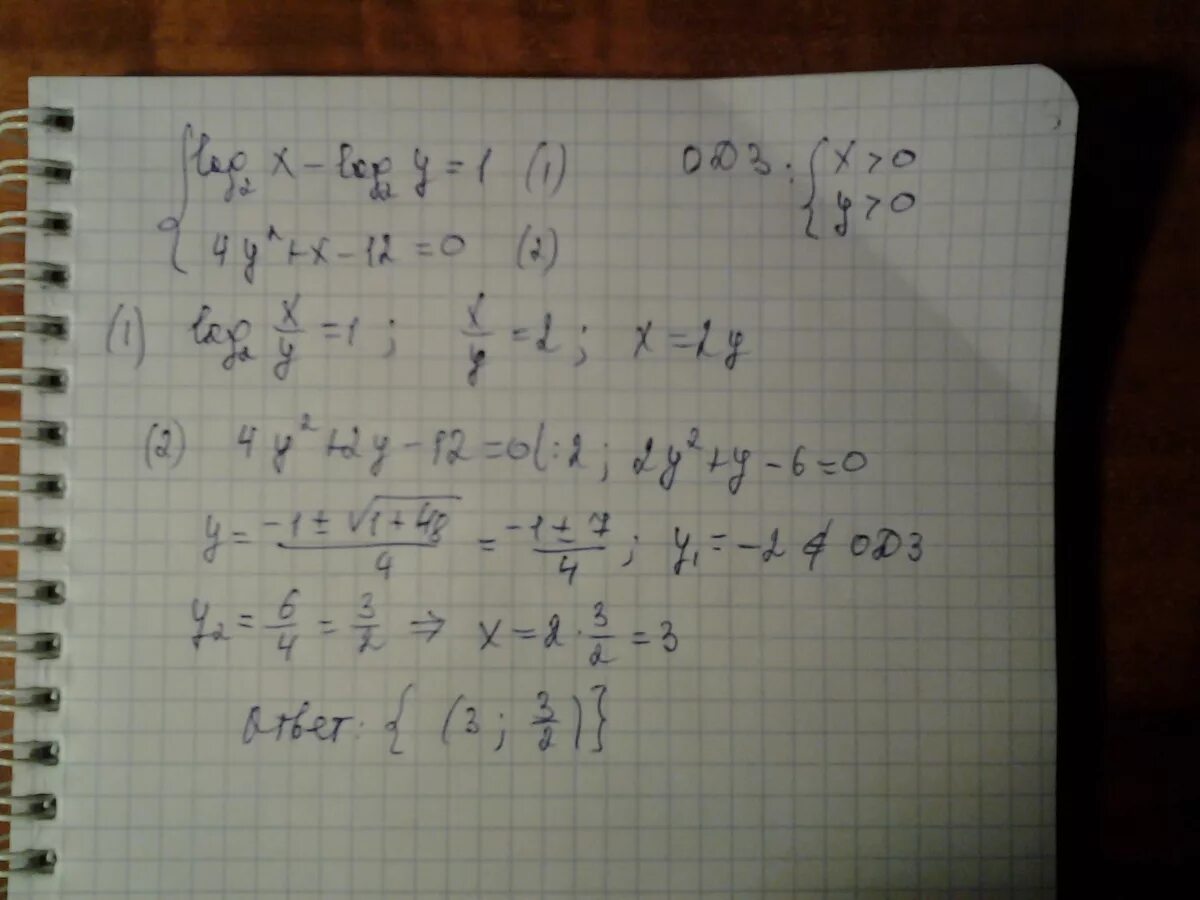 { log₂ x − log₂ y = 1 (1) ОДЗ: { x > 0
y > 0
4y² + x − 12 = 0 (2)
(1) log₂ x/y = 1 ; x/y = 2 ; x = 2y
(2) 4y² + 2y − 12 = 0 | : 2 ; 2y² + y − 6 = 0
y = (−1 ± √(1 + 48))/4 = (−1 ± 7)/4 ; y₁ = −2 ∉ ОДЗ
y₂ = 6/4 = 3/2 ⇒ x = 2 · 3/2 = 3
Ответ: { (3 ; 3/2) }